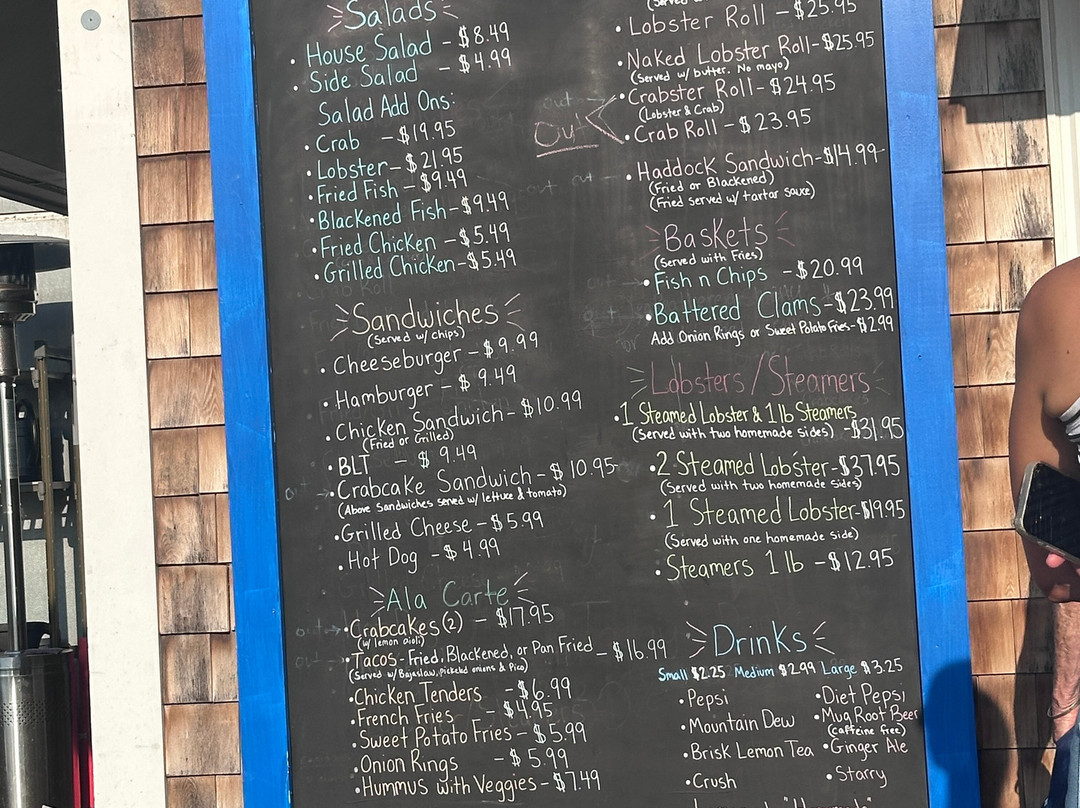 Salads
House Salad - $8.49
Side Salad - $4.99
Salad Add Ons:
Crab - $19.95
Lobster - $21.95
Fried Fish - $9.49
Blackened Fish - $9.49
Fried Chicken - $5.49
Grilled Chicken - $5.49
Sandwiches
(Served w/ chips)
Cheeseburger - $9.99
Hamburger - $9.49
Chicken Sandwich - $10.99
(Fried or Grilled)
BLT - $9.49
out → Crabcake Sandwich - $10.95
(Above Sandwiches served w/ lettuce & tomato)
Grilled Cheese - $5.99
Hot Dog - $4.99
Ala Carte
out → Crabcakes (2) - $17.95
(w/ lemon aioli)
Tacos - Fried, Blackened, or Pan Fried - $16.99
(Served w/ Bajaslaw, pickeled onions & Pico)
Chicken Tenders - $6.99
French Fries - $4.95
Sweet Potato Fries - $5.99
Onion Rings - $5.99
Hummus with Veggies - $7.49
Lobster Roll - $25.95
Naked Lobster Roll - $25.95
(Served w/ butter. No mayo)
Out
Crabster Roll - $24.95
(Lobster & Crab)
Crab Roll - $23.95
Haddock Sandwich - $14.99
(Fried or Blackened)
(Fried served w/ tartar sauce)
Baskets
(Served with Fries)
Fish n Chips - $20.99
Battered Clams - $23.99
Add Onion Rings or Sweet Potato Fries - $2.99
Lobsters / Steamers
1 Steamed Lobster & 1 lb Steamers
(Served with two homemade sides) - $31.95
2 Steamed Lobster - $37.95
(Served with two homemade sides)
1 Steamed Lobster - $19.95
(Served with one homemade side)
Steamers 1 lb - $12.95
Drinks
Small $2.25 Medium $2.99 Large $3.25
Pepsi
Mountain Dew
Brisk Lemon Tea
Crush
Diet Pepsi
Mug Root Beer
(caffeine free)
Ginger Ale
Starry